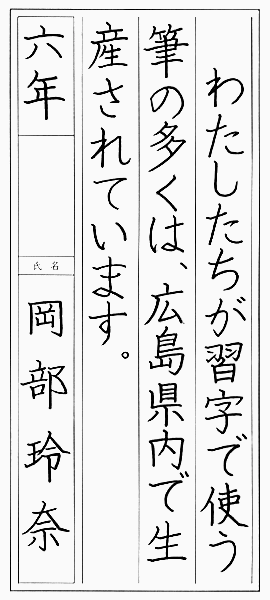 わたしたちが習字で使う
筆の多くは、広島県内で生
産されています。
六年
氏名
岡部玲奈